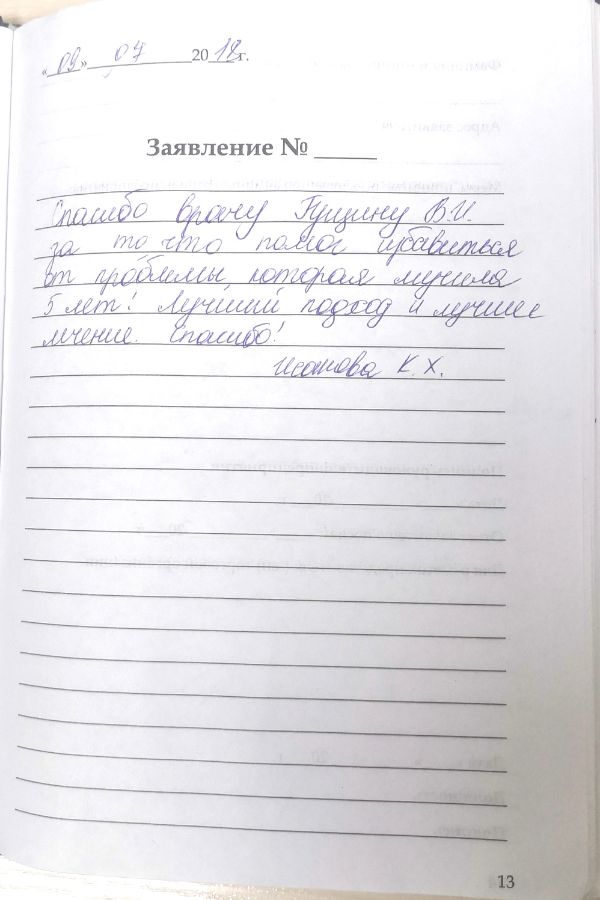 «09» 07 2018г.
Заявление № _____
Спасибо врачу Гущину В.И.
за то что помог избавиться
от проблемы, которая мучила
5 лет! Лучший подход и лучшее
лечение. Спасибо!
Исакова К.Х.
13